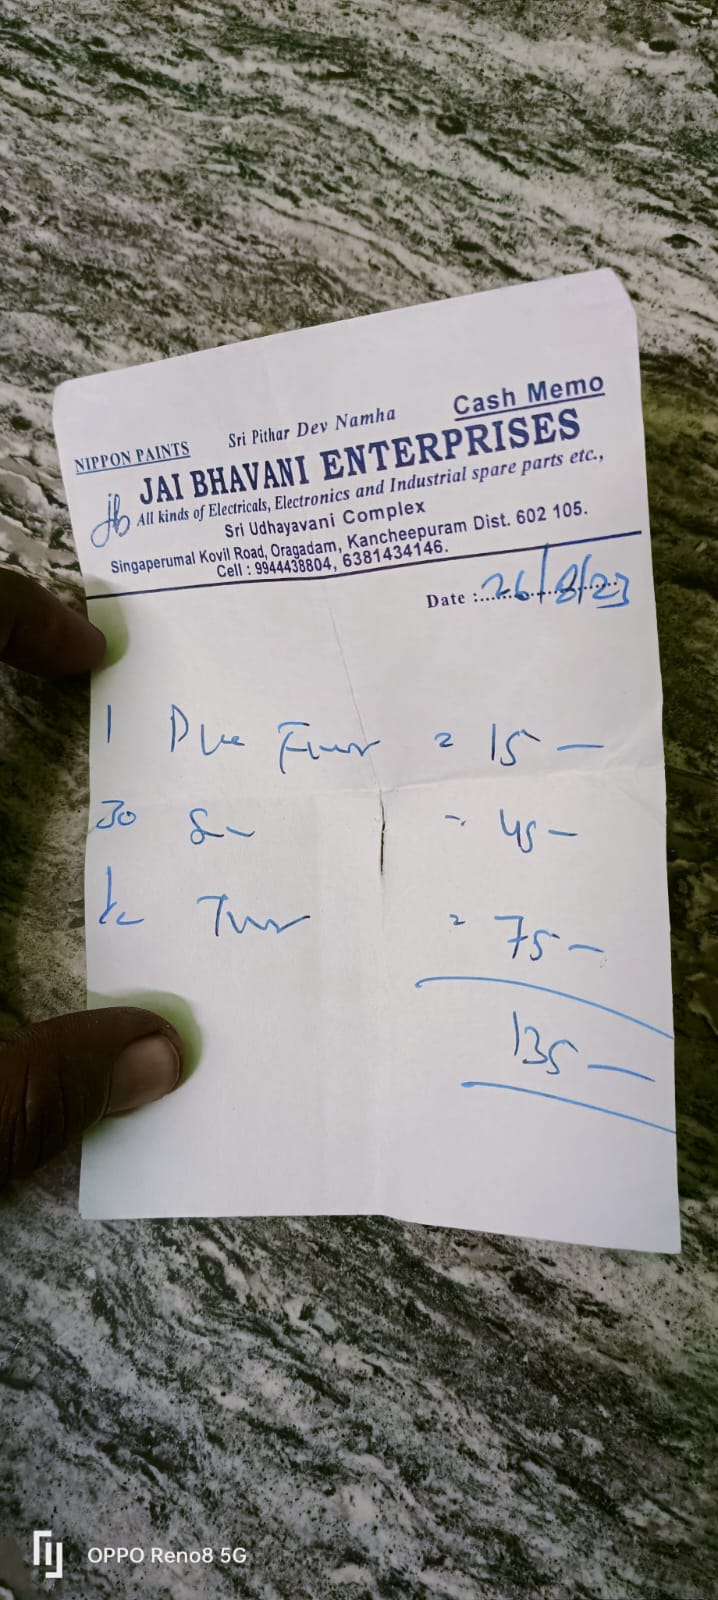 Cash Memo
Sri Pithar Dev Namha
NIPPON PAINTS
JAI BHAVANI ENTERPRISES
jb
All kinds of Electricals, Electronics and Industrial spare parts etc.,
Sri Udhayavani Complex
Singaperumal Kovil Road, Oragadam, Kancheepuram Dist. 602 105.
Cell : 9944438804, 6381434146.
Date :.................. 26/8/23
1 = 15 —
30 = 45 —
= 75 —
135 —
OPPO Reno8 5G